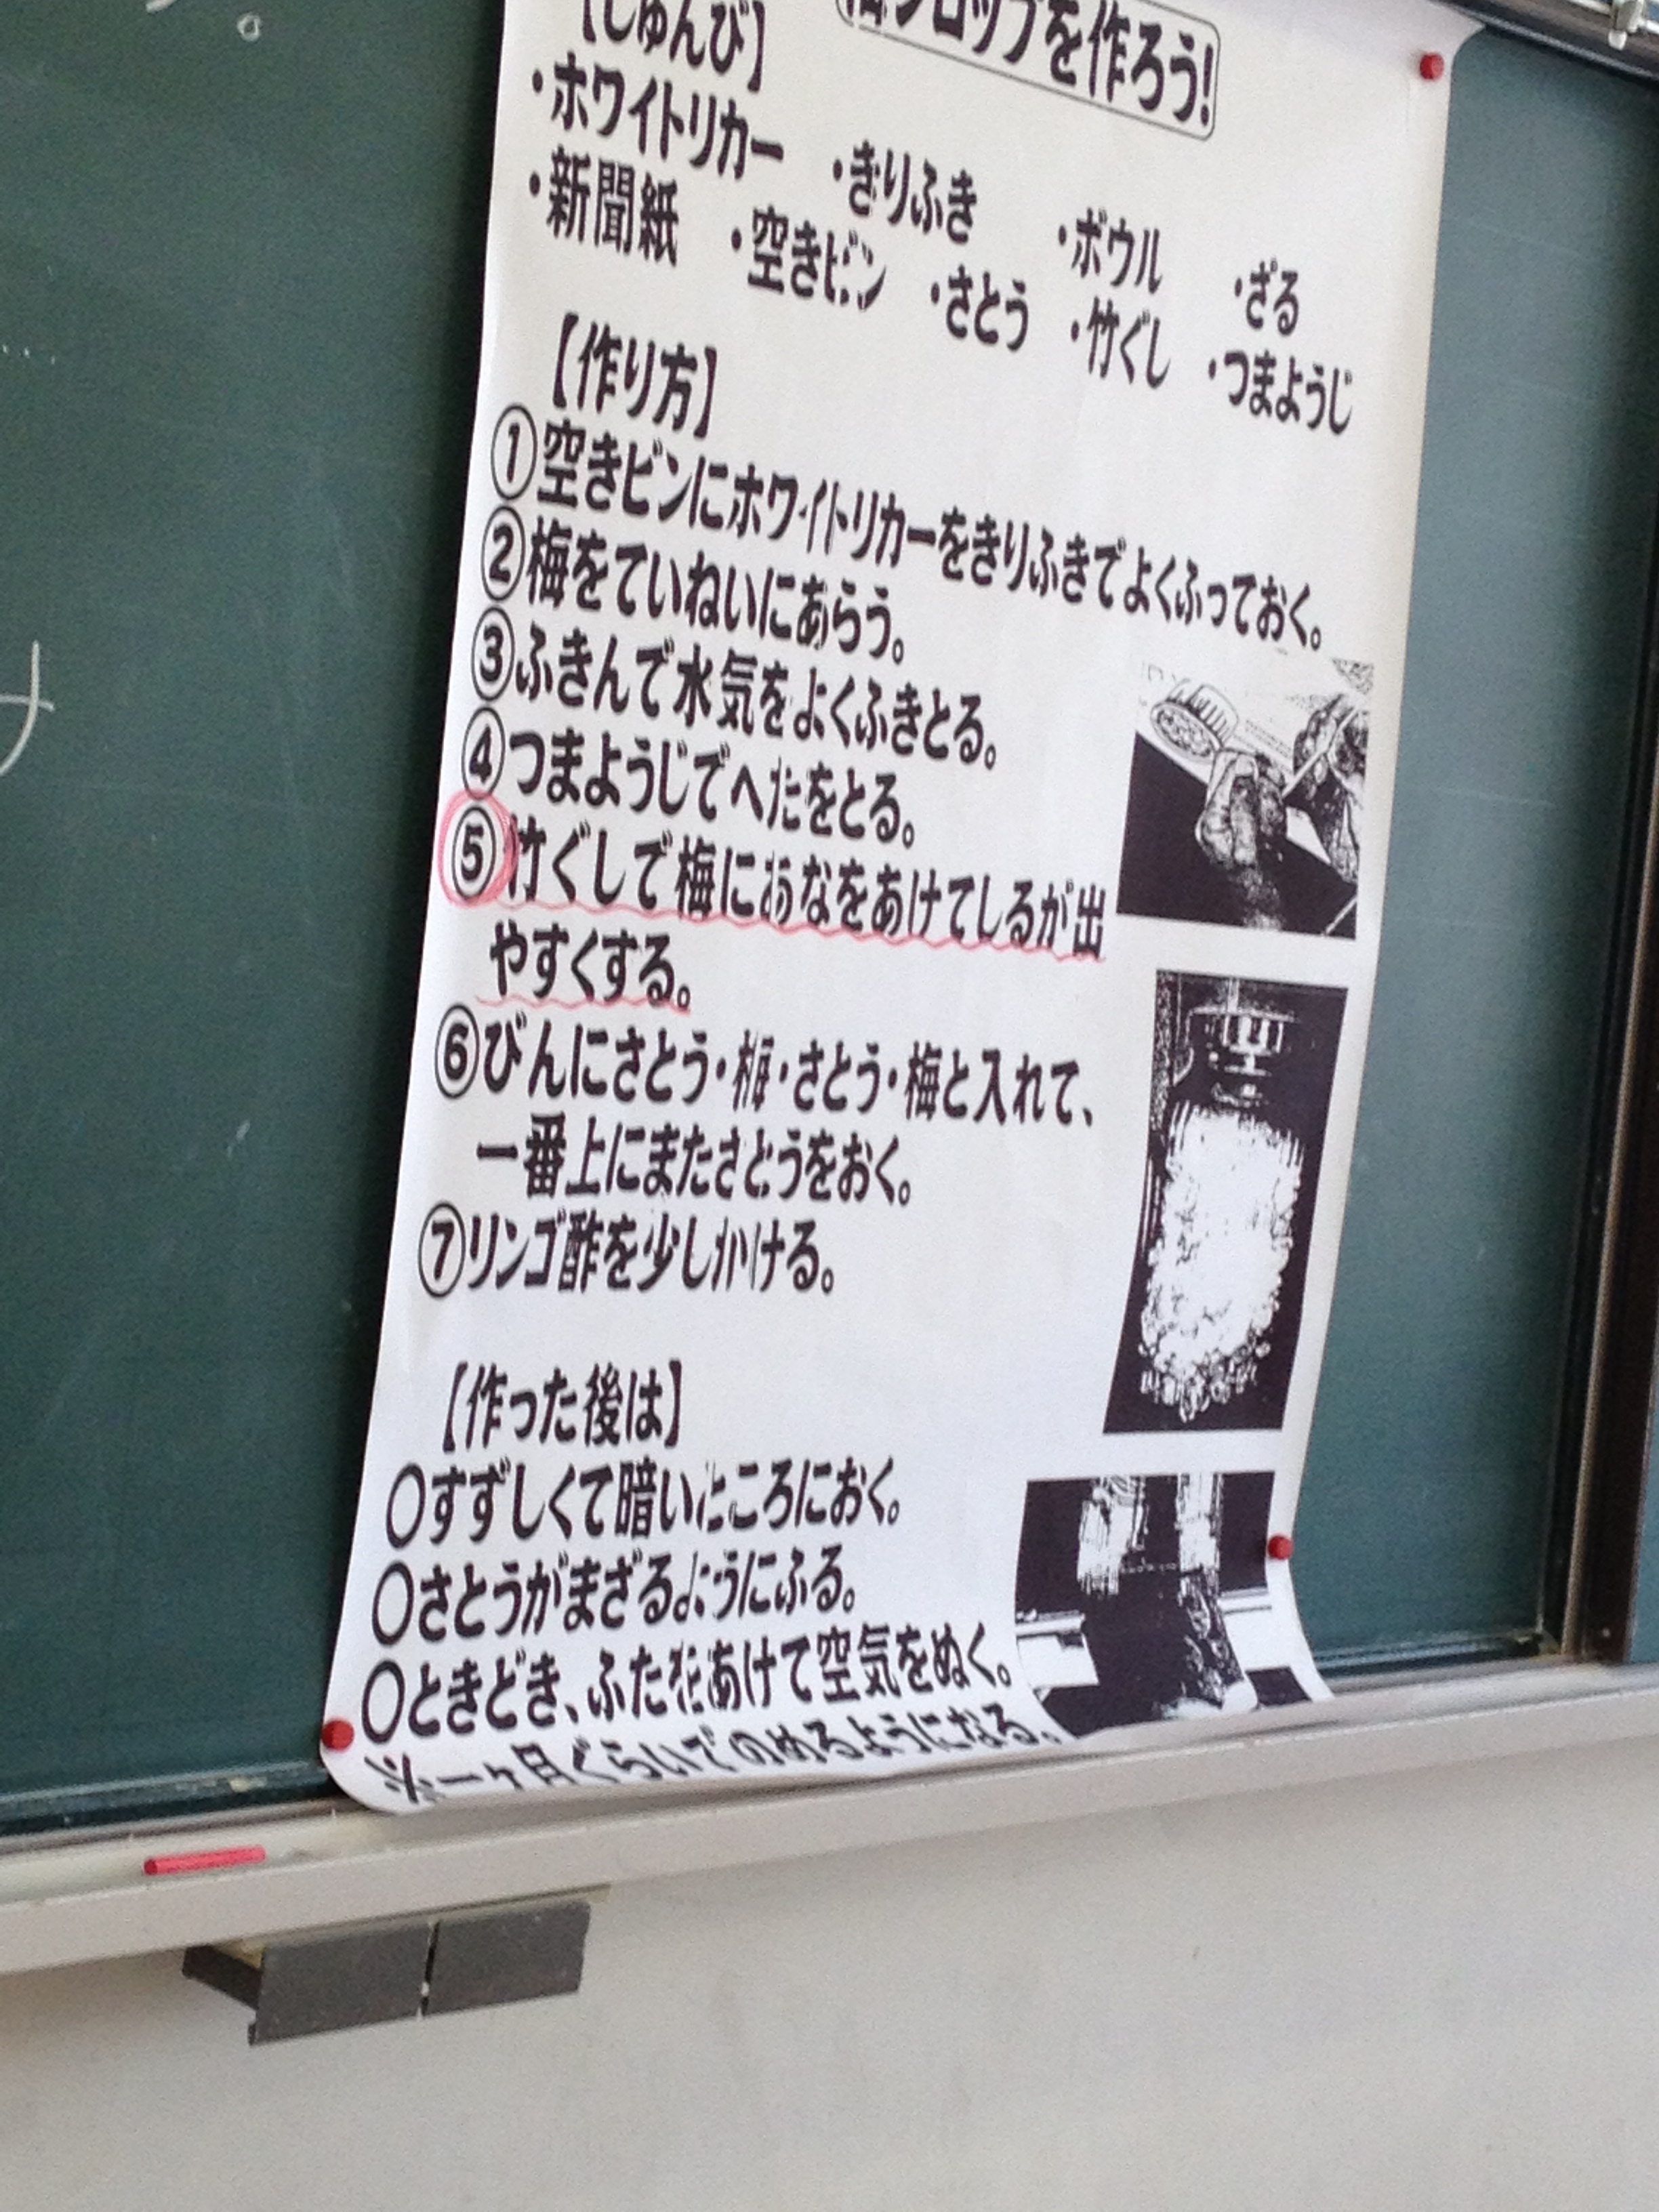 梅シロップを作ろう!
【じゅんび】
・ホワイトリカー ・きりふき ・ボウル ・ざる
・新聞紙 ・空きビン ・さとう ・竹ぐし ・つまようじ
【作り方】
①空きビンにホワイトリカーをきりふきでよくふっておく。
②梅をていねいにあらう。
③ふきんで水気をよくふきとる。
④つまようじでへたをとる。
⑤竹ぐしで梅にあなをあけてしるが出
やすくする。
⑥びんにさとう・梅・さとう・梅と入れて、
一番上にまたさとうをおく。
⑦リンゴ酢を少しかける。
【作った後は】
○すずしくて暗いところにおく。
○さとうがまざるようにふる。
○ときどき、ふたをあけて空気をぬく。
※一ヶ月ぐらいでのめるようになる。